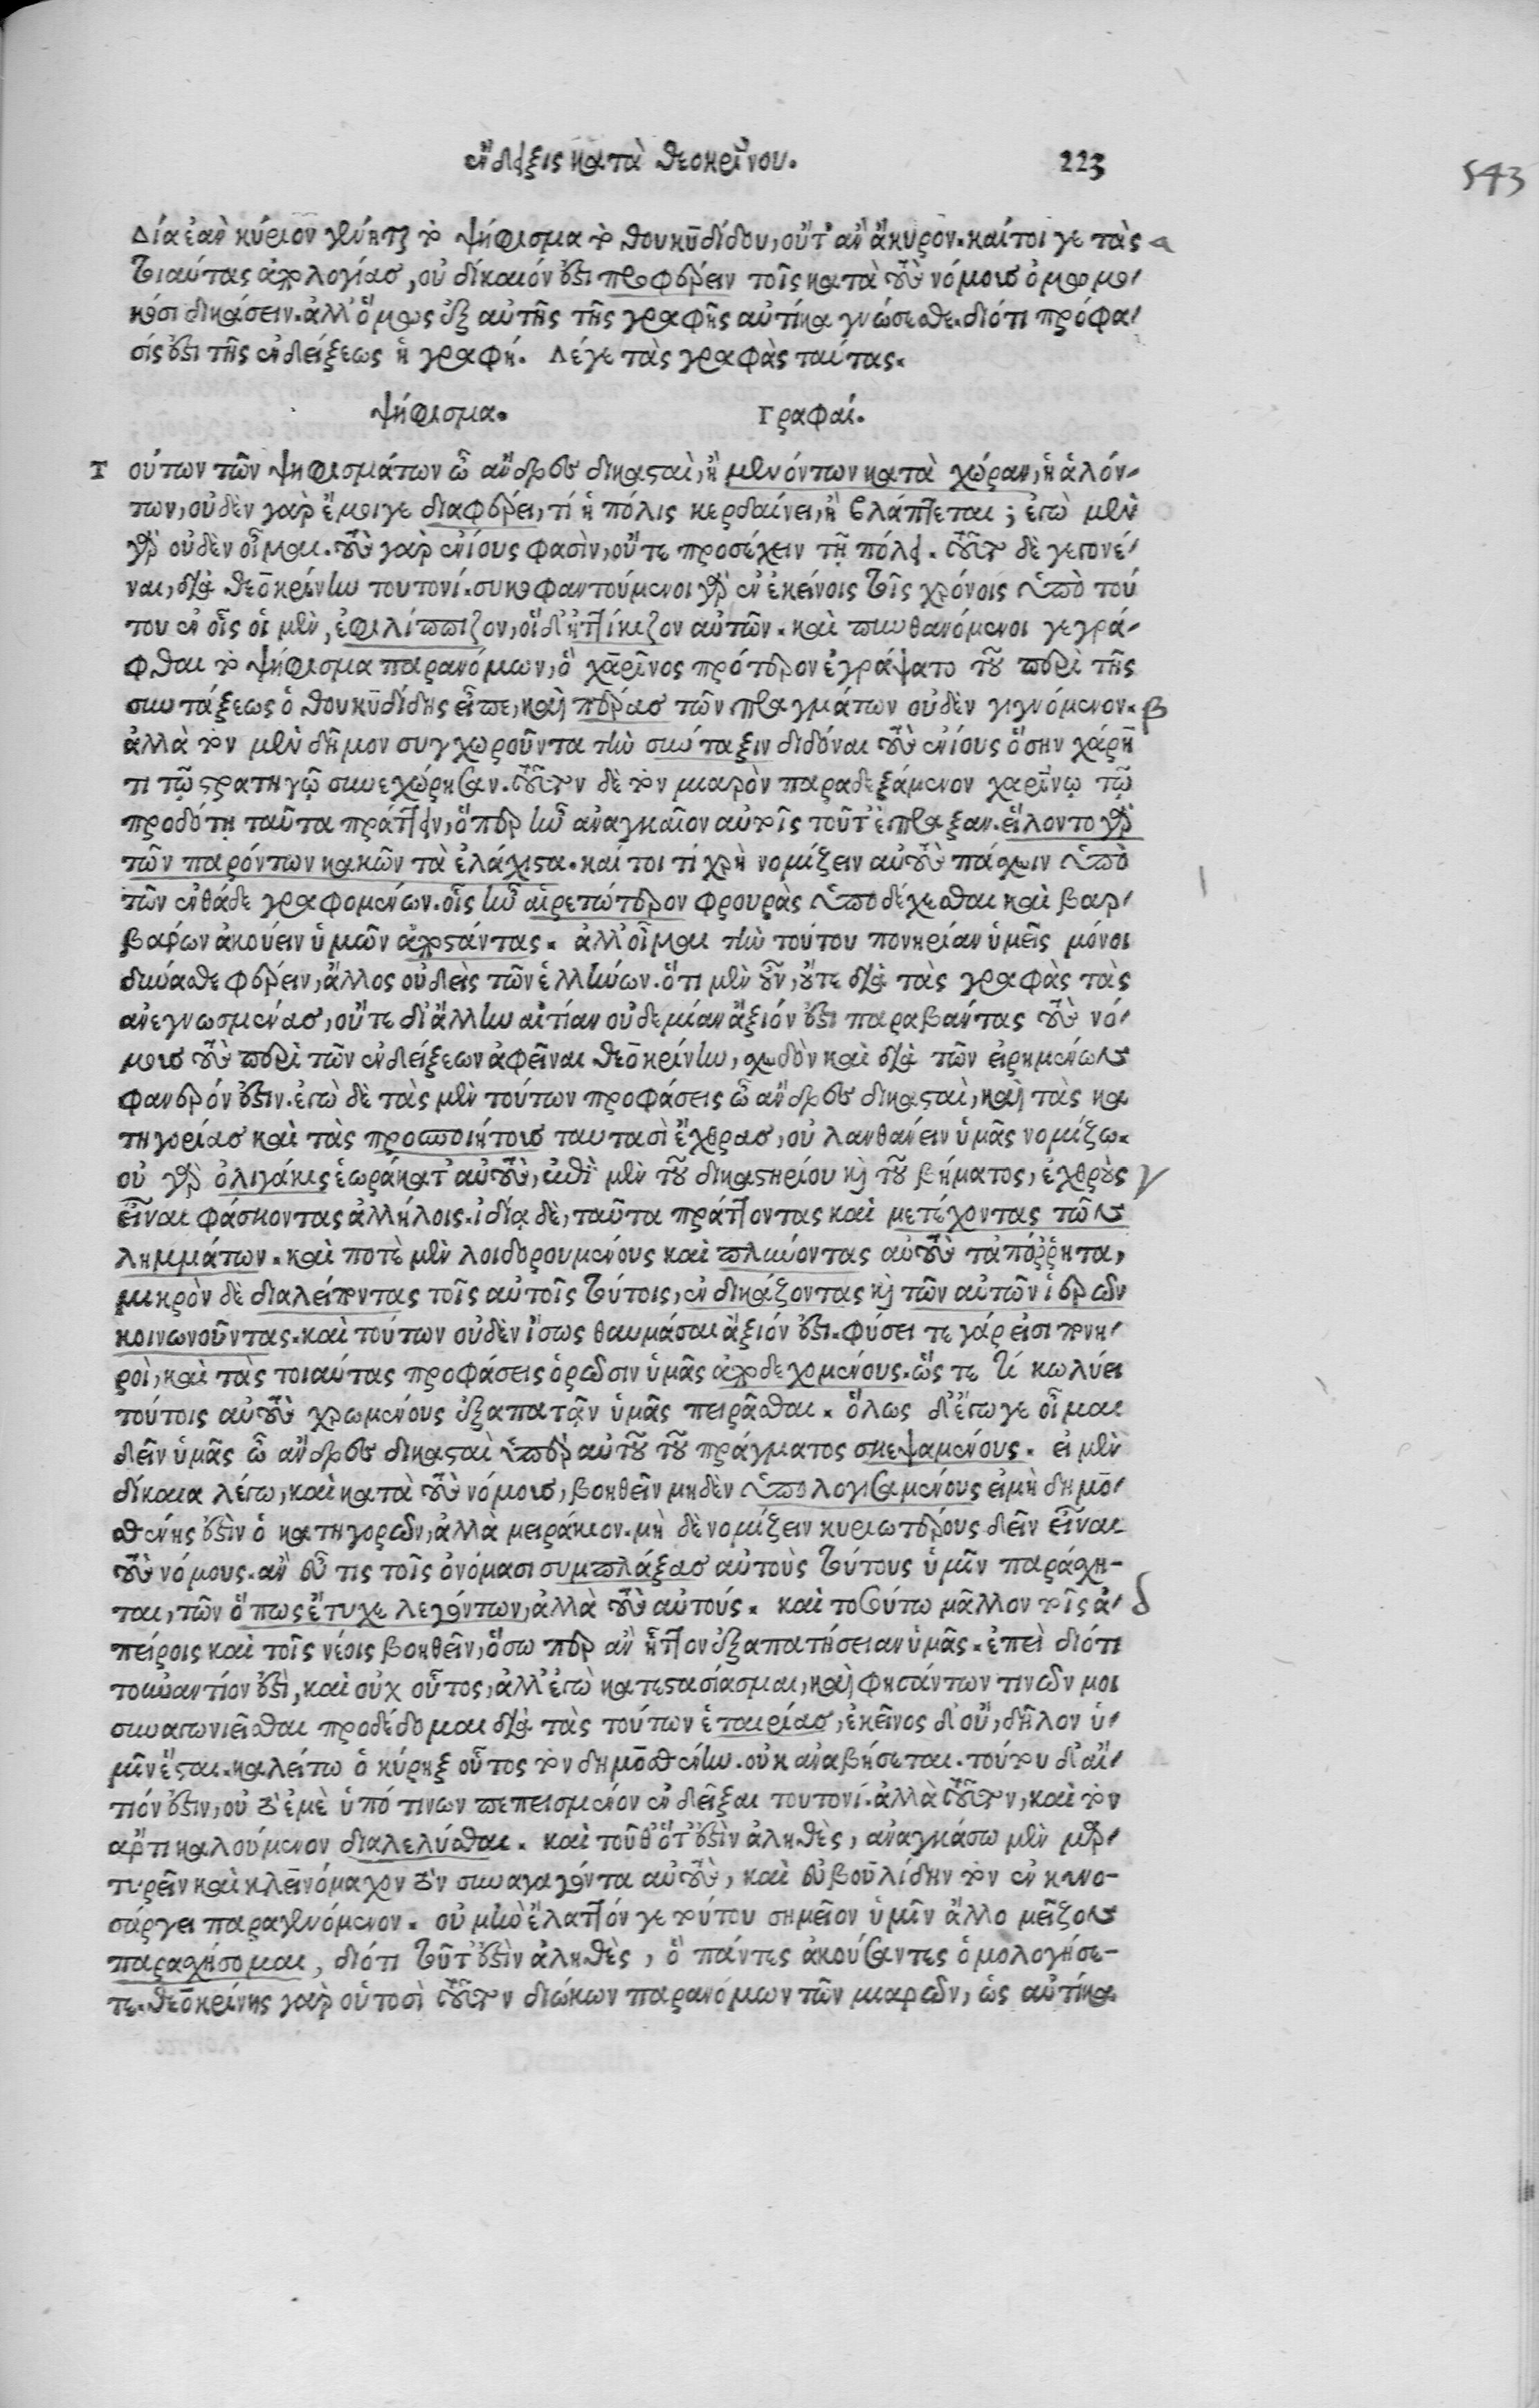 ἔνδειξις κατὰ θεοκρίνου. 223
543
δία ἐὰν κύριον γένηται τὸ ψήφισμα τὸ θουκυδίδου, οὔτ' ἂν ἄκυρον. καίτοι γε τὰς α
τοιαύτας ἀπολογίας, οὐ δίκαιόν ἐστι προφέρειν τοῖς κατὰ τοὺς νόμους ὀμωμο-
κόσι δικάσειν. ἀλλ' ὅμως ἐξ αὐτῆς τῆς γραφῆς αὐτίκα γνώσεσθε. διότι πρόφα-
σίς ἐστι τῆς ἐνδείξεως ἡ γραφή. Λέγε τὰς γραφὰς ταύτας.
ψήφισμα. Γραφαί.
Τ ούτων τῶν ψηφισμάτων ὦ ἄνδρες δικασταὶ, ἢ μενόντων κατὰ χώραν, ἢ ἁλόν-
των, οὐδὲν γὰρ ἔμοιγε διαφέρει, τί ἡ πόλις κερδαίνει, ἢ βλάπτεται; ἐγὼ μὲν
γὰρ οὐδὲν οἶμαι. τοὺς γὰρ αἰνίους φασὶν, οὔτε προσέχειν τῇ πόλει. τοῦτο δὲ γεγονέ-
ναι, διὰ θεοκρίνην τουτονί. συκοφαντούμενοι γὰρ ἐν ἐκείνοις τοῖς χρόνοις ὑπὸ τού
του ἐν οἷς οἱ μὲν, ἐφιλίππιζον, οἱ δ' ἠττίκιζον αὐτῶν. καὶ πυνθανόμενοι γεγρά-
φθαι τὸ ψήφισμα παρανόμων, ὃ χαρῖνος πρότερον ἐγράψατο τοῦ περὶ τῆς
συντάξεως ὁ θουκυδίδης εἶπε, καὶ πέρας τῶν πραγμάτων οὐδὲν γιγνόμενον. β
ἀλλὰ τὸν μὲν δῆμον συγχωροῦντα τὴν σύνταξιν διδόναι τοὺς αἰνίους ὅσην χάρη
τι τῷ στρατηγῷ συνεχώρησαν. τοῦτον δὲ τὸν μιαρὸν παραδεξάμενον χαρίνῳ τῷ
προδότῃ ταῦτα πράττειν, ὅπερ ἦν ἀναγκαῖον αὐτοῖς τοῦτ' ἔπραξαν. εἵλοντο γὰρ
τῶν παρόντων κακῶν τὰ ἐλάχιστα. καίτοι τί χρὴ νομίζειν αὐτοὺς πάσχειν ὑπὸ
τῶν ἐνθάδε γραφομένων. οἷς ἦν αἱρετώτερον φρουρὰς ὑποδέχεσθαι καὶ βαρ-
βάρων ἀκούειν ὑμῶν ἀποστάντας. ἀλλ' οἶμαι τὴν τούτου πονηρίαν ὑμεῖς μόνοι
δύνασθε φέρειν, ἄλλος οὐδεὶς τῶν ἑλλήνων. ὅτι μὲν οὖν, οὔτε διὰ τὰς γραφὰς τὰς
ἀνεγνωσμένας, οὔτε δι' ἄλλην αἰτίαν οὐδεμίαν ἄξιόν ἐστι παραβάντας τοὺς νό-
μους τοὺς περὶ τῶν ἐνδείξεων ἀφεῖναι θεοκρίνην, σχεδὸν καὶ διὰ τῶν εἰρημένων
φανερόν ἐστιν. ἐγὼ δὲ τὰς μὲν τούτων προφάσεις ὦ ἄνδρες δικασταὶ, καὶ τὰς κα
τηγορίας καὶ τὰς προσποιήτους ταυτασὶ ἔχθρας, οὐ λανθάνειν ὑμᾶς νομίζω.
οὐ γὰρ ὀλιγάκις ἑωράκατ' αὐτοὺς, ἐπὶ μὲν τοῦ δικαστηρίου καὶ τοῦ βήματος, ἐχθροὺς γ
εἶναι φάσκοντας ἀλλήλοις. ἰδίᾳ δὲ, ταῦτα πράττοντας καὶ μετέχοντας τῶν
λημμάτων. καὶ ποτὲ μὲν λοιδορουμένους καὶ πλύνοντας αὐτοὺς τἀπόρρητα,
μικρὸν δὲ διαλείποντας τοῖς αὐτοῖς τούτοις, ἐνδικάζοντας καὶ τῶν αὐτῶν ἱερῶν
κοινωνοῦντας. καὶ τούτων οὐδὲν ἴσως θαυμάσαι ἄξιόν ἐστι. φύσει τε γάρ εἰσι πονη-
ροὶ, καὶ τὰς τοιαύτας προφάσεις ὁρῶσιν ὑμᾶς ἀποδεχομένους. ὥς τε τί κωλύει
τούτοις αὐτοὺς χρωμένους ἐξαπατᾷν ὑμᾶς πειρᾶσθαι. ὅλως δ' ἔγωγε οἶμαι
δεῖν ὑμᾶς ὦ ἄνδρες δικασταὶ ὑπὲρ αὐτοῦ τοῦ πράγματος σκεψαμένους. εἰ μὲν
δίκαια λέγω, καὶ κατὰ τοὺς νόμους, βοηθεῖν μηδὲν ὑπολογισαμένους εἰ μὴ δημο-
σθένης ἐστὶν ὁ κατηγορῶν, ἀλλὰ μειράκιον. μὴ δὲ νομίζειν κυριωτέρους δεῖν εἶναι
τοὺς νόμους. ἂν εὖ τις τοῖς ὀνόμασι συμπλέξας αὐτοὺς τούτους ὑμῖν παράσχη-
ται, τῶν ὅπως ἔτυχε λεγόντων, ἀλλὰ τοὺς αὐτούς. καὶ τοσούτω μᾶλλον τοῖς ἀ- δ
πείροις καὶ τοῖς νέοις βοηθεῖν, ὅσω περ ἂν ἧττον ἐξαπατήσειαν ὑμᾶς. ἐπεὶ διότι
τοὐναντίον ἐστὶ, καὶ οὐχ οὗτος, ἀλλ' ἐγὼ κατεστασίασμαι, καὶ φησάντων τινῶν μοι
συναγωνιεῖσθαι προδέδομαι διὰ τὰς τούτων ἑταιρίας, ἐκεῖνος δ' οὔ, δῆλον ὑ-
μῖν ἔσται. καλείτω ὁ κύρηξ οὗτος τὸν δημοσθένην. οὐκ ἀναβήσεται. τούτου δ' αἴ-
τιόν ἐστιν, οὐ τὸ ἐμὲ ὑπό τινων πεπεισμένον ἐνδεῖξαι τουτονί. ἀλλὰ τοῦτον, καὶ τὸν
ἄρτι καλούμενον διαλελύσθαι. καὶ τοῦθ' ὅτ' ἐστὶν ἀληθὲς, ἀναγκάσω μὲν μαρ-
τυρεῖν καὶ κλεινόμαχον τὸν συναγαγόντα αὐτοὺς, καὶ εὐβουλίδην τὸν ἐν κυνο-
σάργει παραγενόμενον. οὐ μὴν ἔλαττόν γε τούτου σημεῖον ὑμῖν ἄλλο μεῖζον
παρασχήσομαι, διότι τοῦτ' ἐστὶν ἀληθὲς, ὃ πάντες ἀκούσαντες ὁμολογήσε-
τε. θεοκρίνης γὰρ οὑτοσὶ τοῦτον διώκων παρανόμων τῶν μιαρῶν, ὡς αὐτίκα